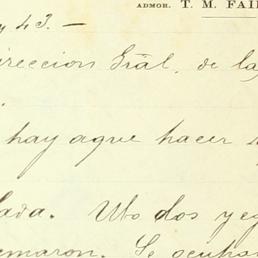 ADMOR. T. M. FAI
y 43. —
ireccion Gral. de la
hay aque hacer
lada. Ubo dos y eg
emaron. Se ocupa